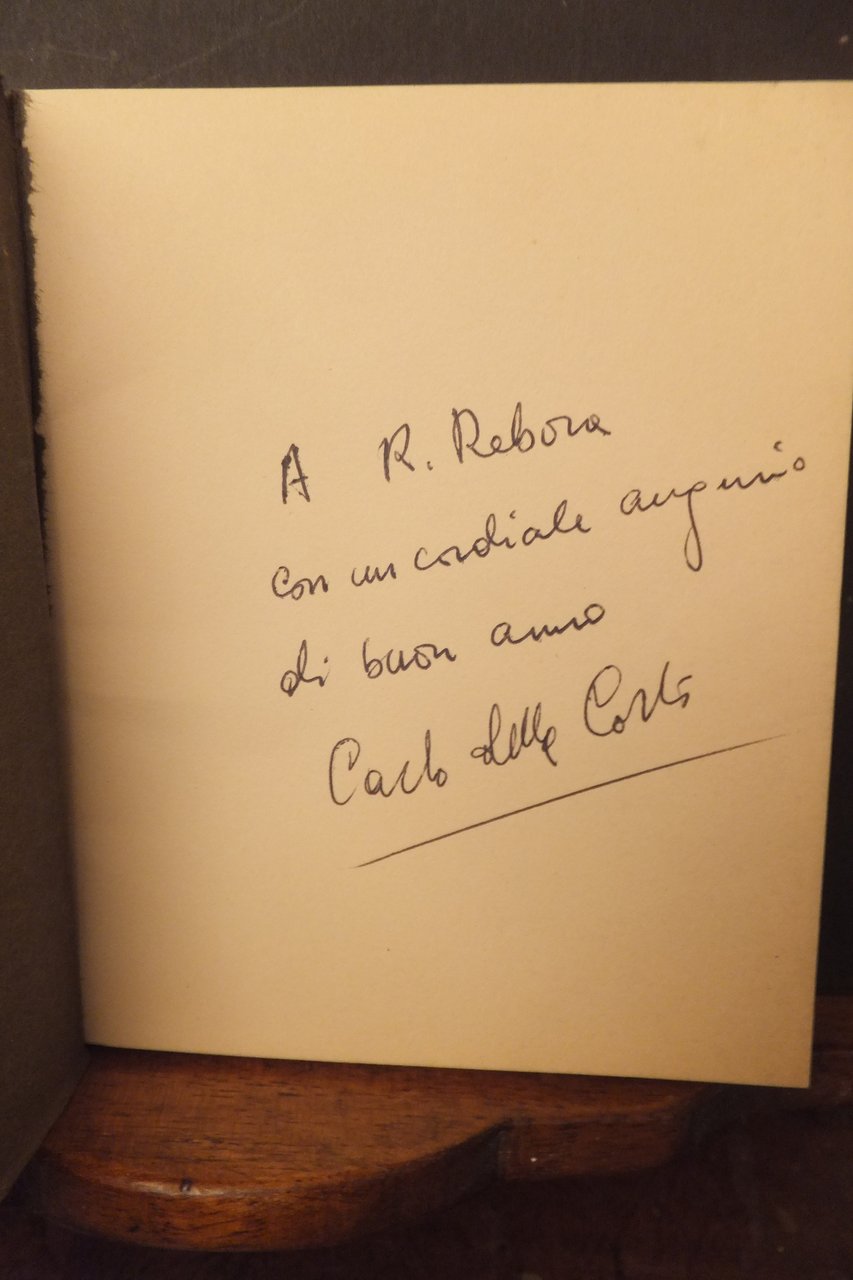 A R. Rebora
con un cordiale augurio
di buon anno
Carlo della Corte